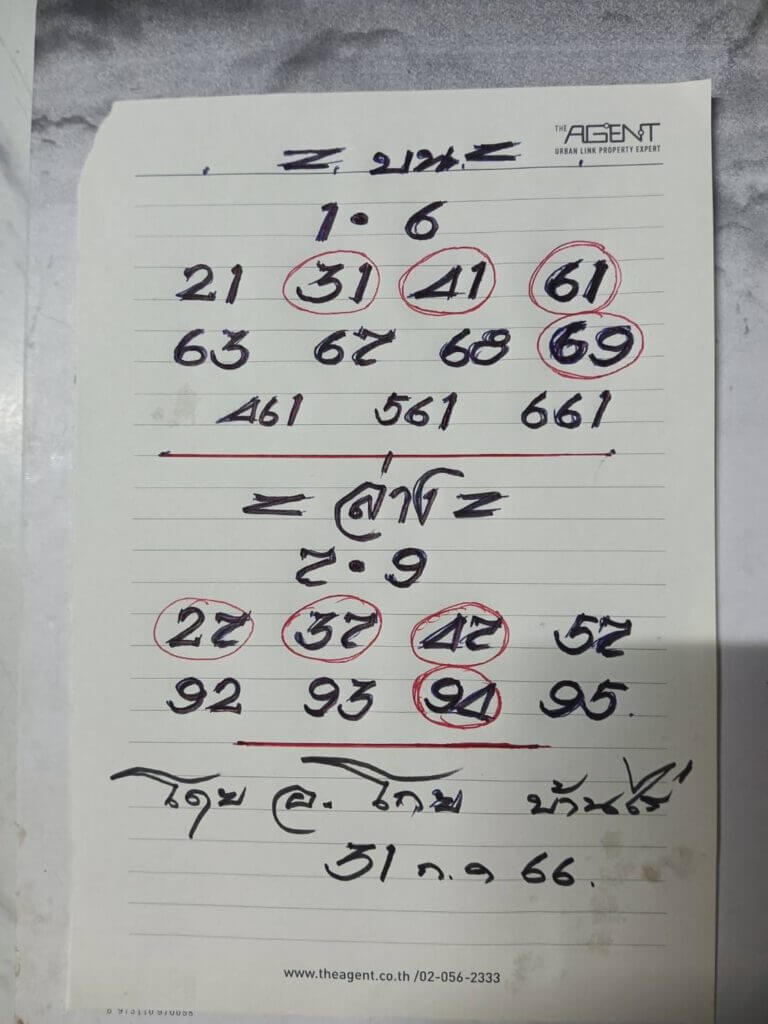 THE AGENT
URBAN LINK PROPERTY EXPERT
= บน =
1 · 6
21 31 41 61
63 67 68 69
461 561 661
= ล่าง =
7 · 9
27 37 47 57
92 93 94 95.
โดย อ. โกย บ้านไร่
31 ก.ค 66.
www.theagent.co.th /02-056-2333